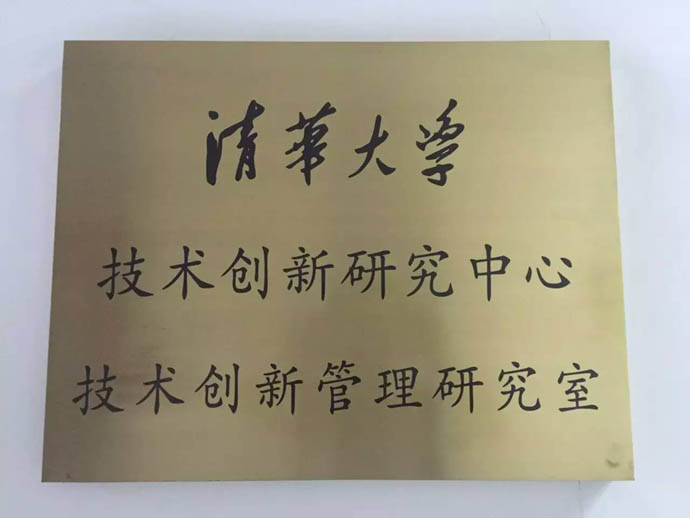 清華大学
技术创新研究中心
技术创新管理研究室